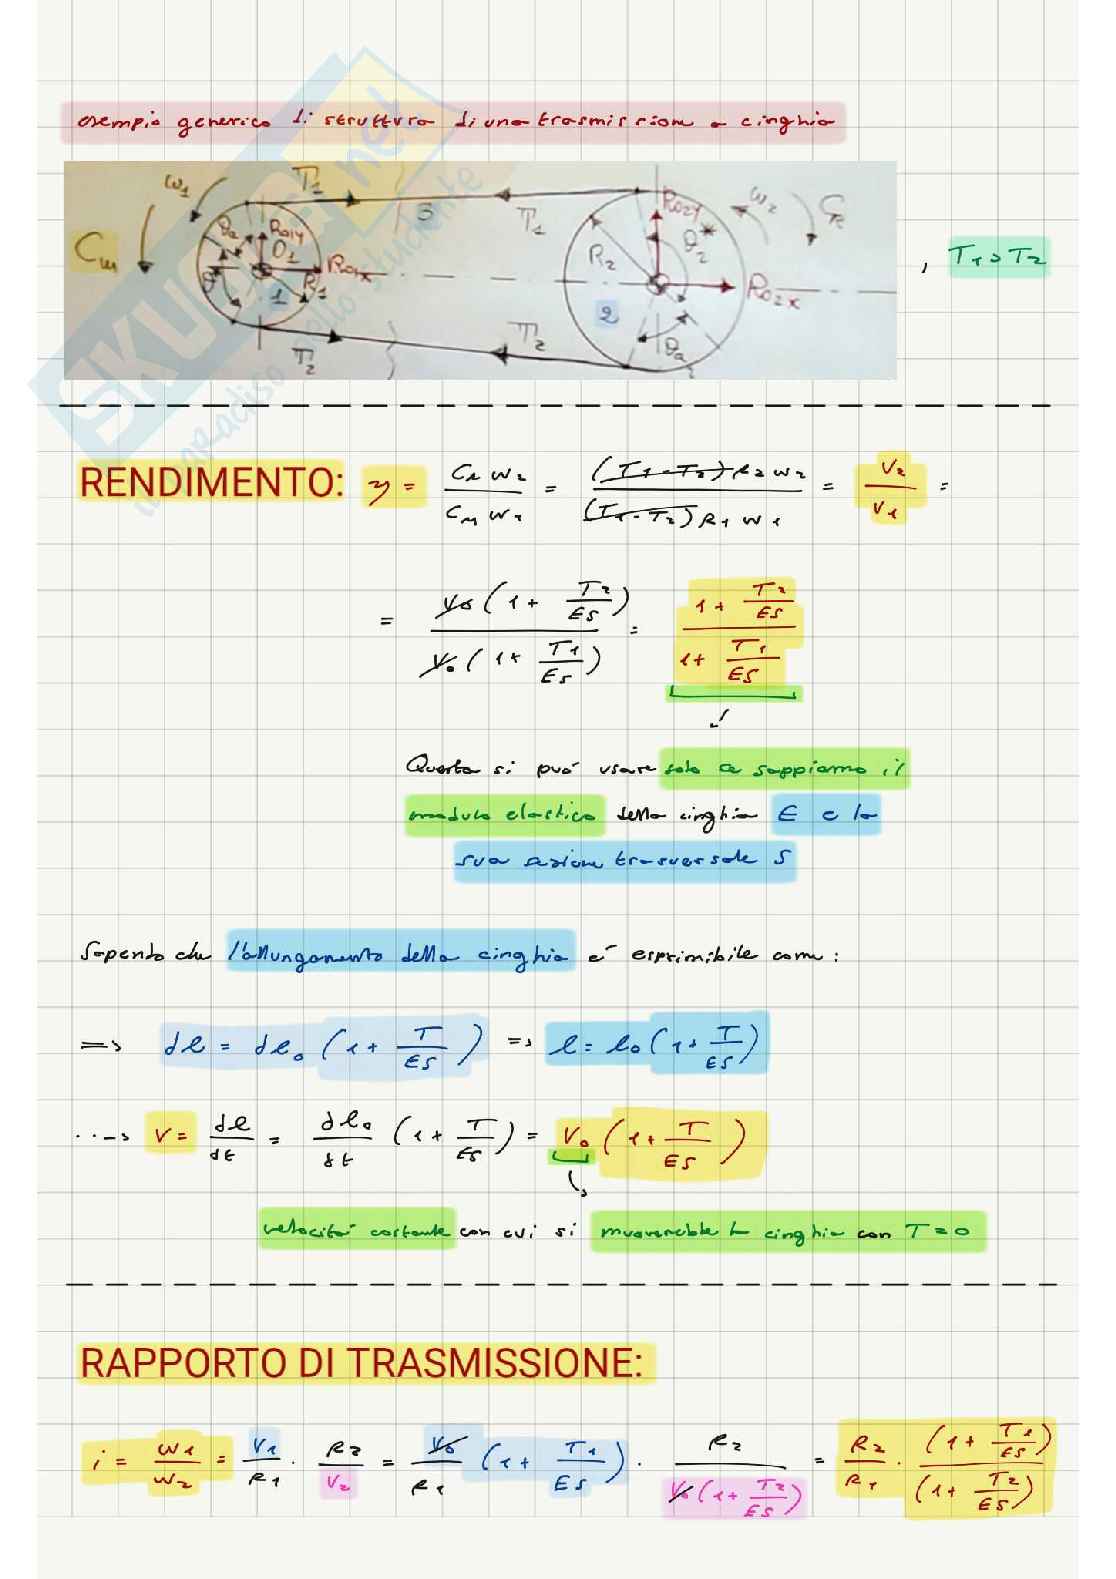 esempio generico di struttura di una trasmissione a cinghia
ω1 T1 S T1 R02y ω2 CR
Cm θa R01y O1 R01x R1 1 R2 θ2* R02x 2 θa2 , T1 > T2
T2 T2
SKUOLA.net
il paradiso dello studente
RENDIMENTO: η = CR ω2 / CM ω1 = (T1 - T2) R2 ω2 / (T1 - T2) R1 ω1 = V2 / V1 =
= V0 (1 + T2/ES) / V0 (1 + T1/ES) = 1 + T2/ES / 1 + T1/ES
Questa si può usare solo se sappiamo il
modulo elastico della cinghia E e la
sua sezione trasversale S
Sapendo che l'allungamento della cinghia è esprimibile come:
=> dl = dl0 (1 + T/ES) => l = l0 (1 + T/ES)
...-> V = dl/dt = dl0/dt (1 + T/ES) = V0 (1 + T/ES)
velocità costante con cui si muoverebbe la cinghia con T = 0
RAPPORTO DI TRASMISSIONE:
i = ω1/ω2 = V1/R1 · R2/V2 = V0/R1 (1 + T1/ES) · R2 / V0 (1 + T2/ES) = R2/R1 · (1 + T1/ES) / (1 + T2/ES)